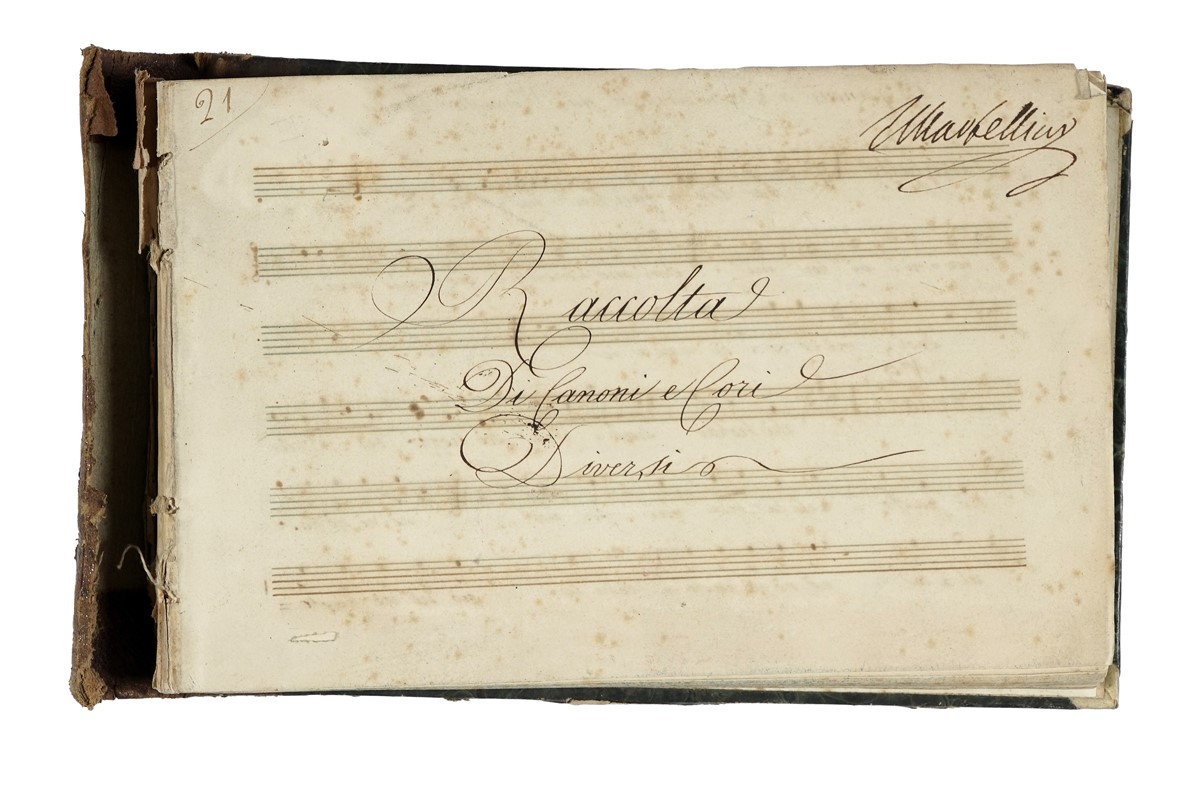 21
Raccolta
Di Canoni e Cori
Diversi